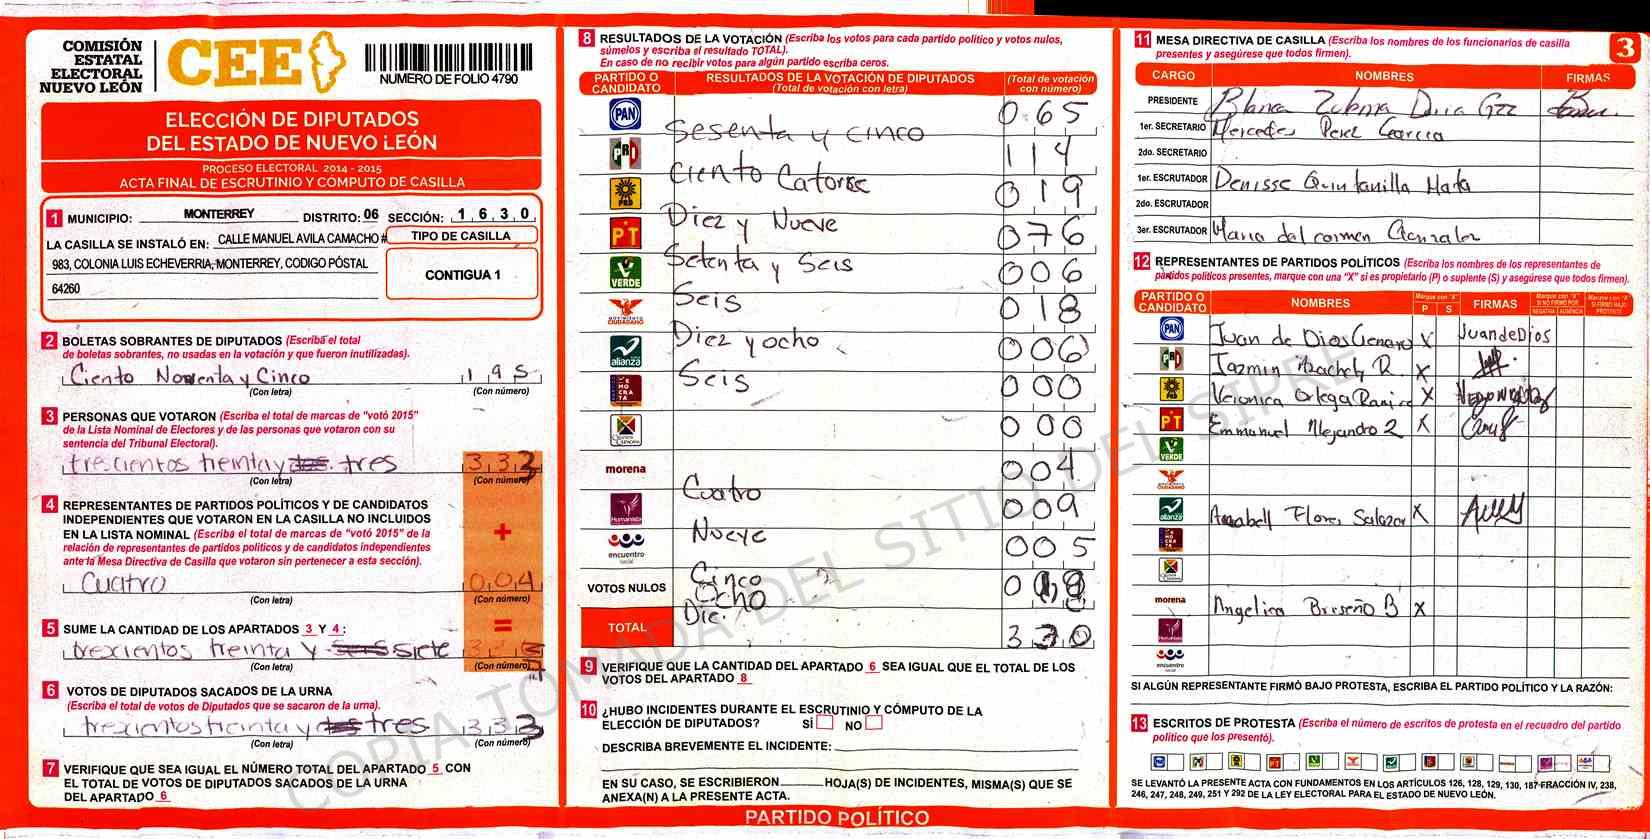 COMISIÓN
ESTATAL
ELECTORAL
NUEVO LEÓN
CEE
NUMERO DE FOLIO 4790
ELECCIÓN DE DIPUTADOS
DEL ESTADO DE NUEVO LEÓN
PROCESO ELECTORAL 2014 - 2015
ACTA FINAL DE ESCRUTINIO Y CÓMPUTO DE CASILLA
1 MUNICIPIO: MONTERREY DISTRITO: 06 SECCIÓN: 1 6 3 0
LA CASILLA SE INSTALÓ EN: CALLE MANUEL AVILA CAMACHO #
983, COLONIA LUIS ECHEVERRIA, MONTERREY, CODIGO PÓSTAL
64260
TIPO DE CASILLA
CONTIGUA 1
2 BOLETAS SOBRANTES DE DIPUTADOS (Escriba el total
de boletas sobrantes, no usadas en la votación y que fueron inutilizadas).
Ciento Noventa y Cinco 1 9 5
(Con letra) (Con número)
3 PERSONAS QUE VOTARON (Escriba el total de marcas de "votó 2015"
de la Lista Nominal de Electores y de las personas que votaron con su
sentencia del Tribunal Electoral).
trecientos treinta y tres 3 3 3
(Con letra) (Con número)
4 REPRESENTANTES DE PARTIDOS POLÍTICOS Y DE CANDIDATOS
INDEPENDIENTES QUE VOTARON EN LA CASILLA NO INCLUIDOS
EN LA LISTA NOMINAL (Escriba el total de marcas de "votó 2015" de la
relación de representantes de partidos políticos y de candidatos independientes
ante la Mesa Directiva de Casilla que votaron sin pertenecer a esta sección).
+
Cuatro 0 0 4
(Con letra) (Con número)
5 SUME LA CANTIDAD DE LOS APARTADOS 3 Y 4:
=
trexientos treinta y siete
(Con letra) (Con número)
6 VOTOS DE DIPUTADOS SACADOS DE LA URNA
(Escriba el total de votos de Diputados que se sacaron de la urna).
trexientos treinta y tres 3 3 3
(Con letra) (Con número)
7 VERIFIQUE QUE SEA IGUAL EL NÚMERO TOTAL DEL APARTADO 5 CON
EL TOTAL DE VOTOS DE DIPUTADOS SACADOS DE LA URNA
DEL APARTADO 6
8 RESULTADOS DE LA VOTACIÓN (Escriba los votos para cada partido político y votos nulos,
súmelos y escriba el resultado TOTAL).
En caso de no recibir votos para algún partido escriba ceros.
PARTIDO O CANDIDATO RESULTADOS DE LA VOTACIÓN DE DIPUTADOS (Total de votación con letra) (Total de votación con número)
PAN Sesenta y cinco 0 6 5
PRI Ciento Catorce 1 1 4
PRD Diez y Nueve 0 1 9
PT Setenta y Seis 0 7 6
VERDE Seis 0 0 6
MOVIMIENTO CIUDADANO Diez y ocho 0 1 8
alianza Seis 0 0 6
DEMOCRATA 0 0 0
Cruzada Ciudadana 0 0 0
morena Cuatro 0 0 4
Humanista Nueve 0 0 9
encuentro social Cinco 0 0 5
VOTOS NULOS Ocho
TOTAL
9 VERIFIQUE QUE LA CANTIDAD DEL APARTADO 6 SEA IGUAL QUE EL TOTAL DE LOS
VOTOS DEL APARTADO 8
10 ¿HUBO INCIDENTES DURANTE EL ESCRUTINIO Y CÓMPUTO DE LA
ELECCIÓN DE DIPUTADOS? SÍ NO
DESCRIBA BREVEMENTE EL INCIDENTE:
EN SU CASO, SE ESCRIBIERON HOJA(S) DE INCIDENTES, MISMA(S) QUE SE
ANEXA(N) A LA PRESENTE ACTA.
PARTIDO POLÍTICO
11 MESA DIRECTIVA DE CASILLA (Escriba los nombres de los funcionarios de casilla
presentes y asegúrese que todos firmen).
3
CARGO NOMBRES FIRMAS
PRESIDENTE Blanca Zulema
1er. SECRETARIO Mercedes Perez Garcia
2do. SECRETARIO
1er. ESCRUTADOR Denisse Quintanilla Mata
2do. ESCRUTADOR
3er. ESCRUTADOR Maria del carmen Gonzalez
12 REPRESENTANTES DE PARTIDOS POLÍTICOS (Escriba los nombres de los representantes de
partidos políticos presentes, marque con una "X" si es propietario (P) o suplente (S) y asegúrese que todos firmen).
PARTIDO O CANDIDATO NOMBRES Marque con "X" P S FIRMAS Marque con "X" SI NO FIRMÓ POR NEGATIVA AUSENCIA Marque con "X" SI FIRMÓ BAJO PROTESTA
PAN Juan de Dios Genaro X Juan de Dios
PRI Jazmin Itzachely R. X
PRD Veronica Ortega Ramirez X
PT Emmanuel Alejandro Z X
VERDE
MOVIMIENTO CIUDADANO
alianza Annabell Flores Salazar X
morena Angelica Briseño B X
encuentro social
SI ALGÚN REPRESENTANTE FIRMÓ BAJO PROTESTA, ESCRIBA EL PARTIDO POLÍTICO Y LA RAZÓN:
13 ESCRITOS DE PROTESTA (Escriba el número de escritos de protesta en el recuadro del partido
político que los presentó).
SE LEVANTÓ LA PRESENTE ACTA CON FUNDAMENTOS EN LOS ARTÍCULOS 126, 128, 129, 130, 187 FRACCIÓN IV, 238,
246, 247, 248, 249, 251 Y 292 DE LA LEY ELECTORAL PARA EL ESTADO DE NUEVO LEÓN.
COPIA TOMADA DEL SITIO DEL SIPRE